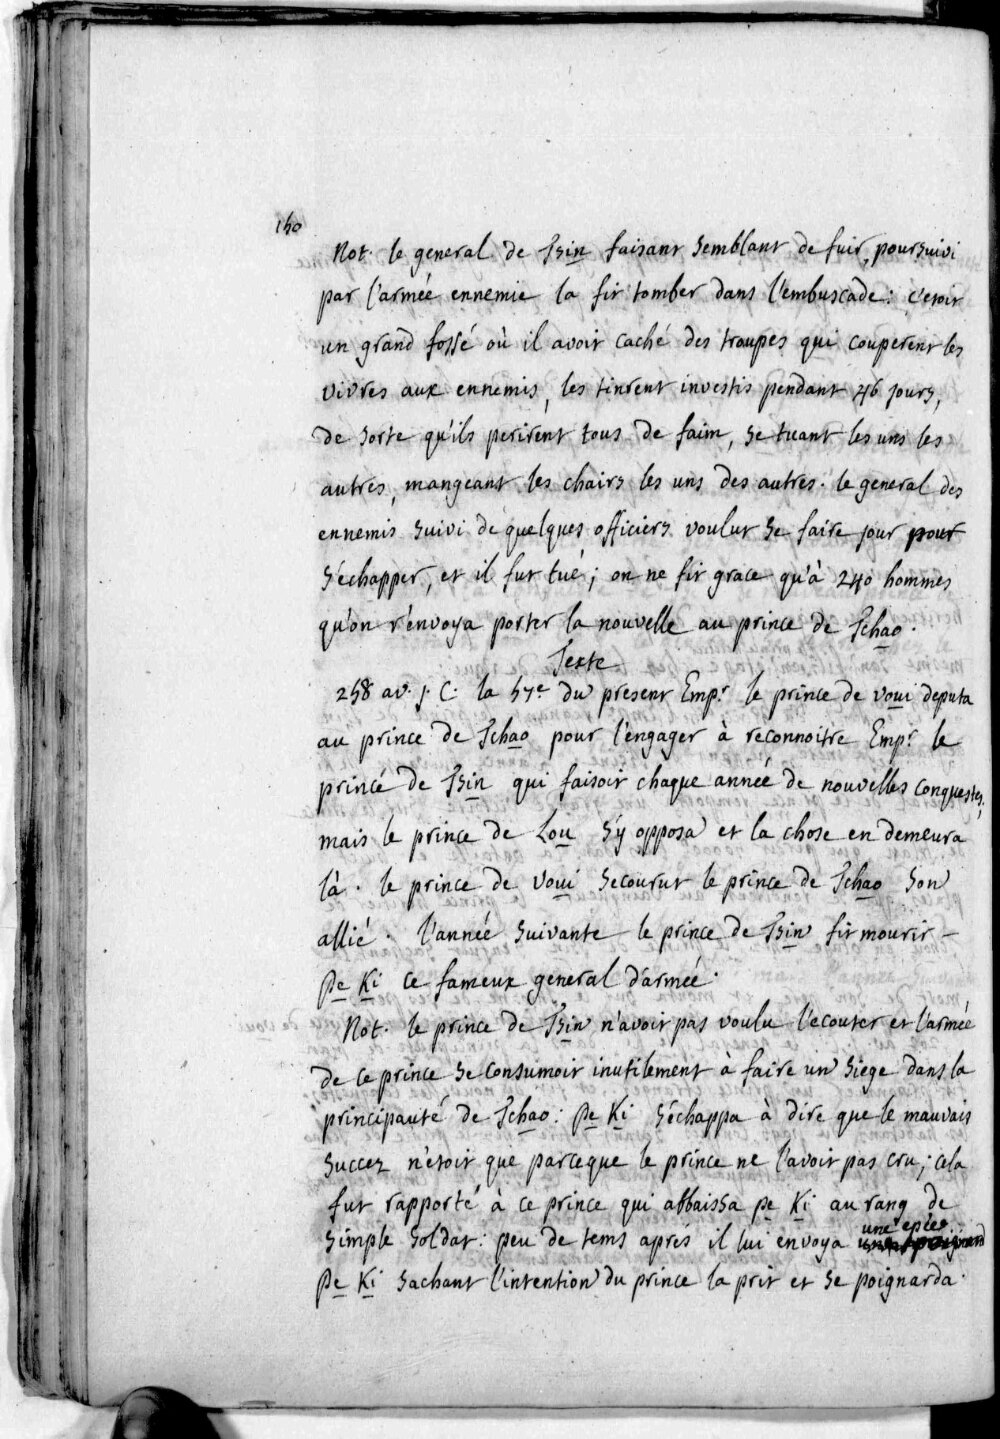 140
Not. le general de Tsin faisant semblant de fuir, poursuivi
par l'armée ennemie la fit tomber dans l'embuscade: c'etoit
un grand fossé où il avoit caché des troupes qui couperent les
vivres aux ennemis, les tinrent investis pendant 46 jours,
de sorte qu'ils perirent tous de faim, se tuant les uns les
autres, mangeant les chairs les uns des autres. le general des
ennemis suivi de quelques officiers voulut se faire jour pour
s'échapper, et il fut tué; on ne fit grace qu'à 240 hommes
qu'on r'envoya porter la nouvelle au prince de Tchao.
Texte
258 av. J. C. la 57e du present Empr. le prince de voui deputa
au prince de Tchao pour l'engager à reconnoitre Empr le
prince de Tsin qui faisoit chaque année de nouvelles conquestes;
mais le prince de Lou s'y opposa et la chose en demeura
là. le prince de voui secourut le prince de Tchao son
allié. l'année suivante le prince de Tsin fit mourir –
Pe Ki ce fameux general d'armée.
Not. le prince de Tsin n'avoit pas voulu l'ecouter et l'armée
de ce prince se consumoit inutilement à faire un siege dans la
principauté de Tchao: Pe Ki s'échappa à dire que le mauvais
succez n'etoit que parceque le prince ne l'avoit pas cru; cela
fut rapporté à ce prince qui abbaissa pe Ki au rang de
simple soldat: peu de tems aprés il lui envoya une epée
Pe Ki sachant l'intention du prince la prit et se poignarda.